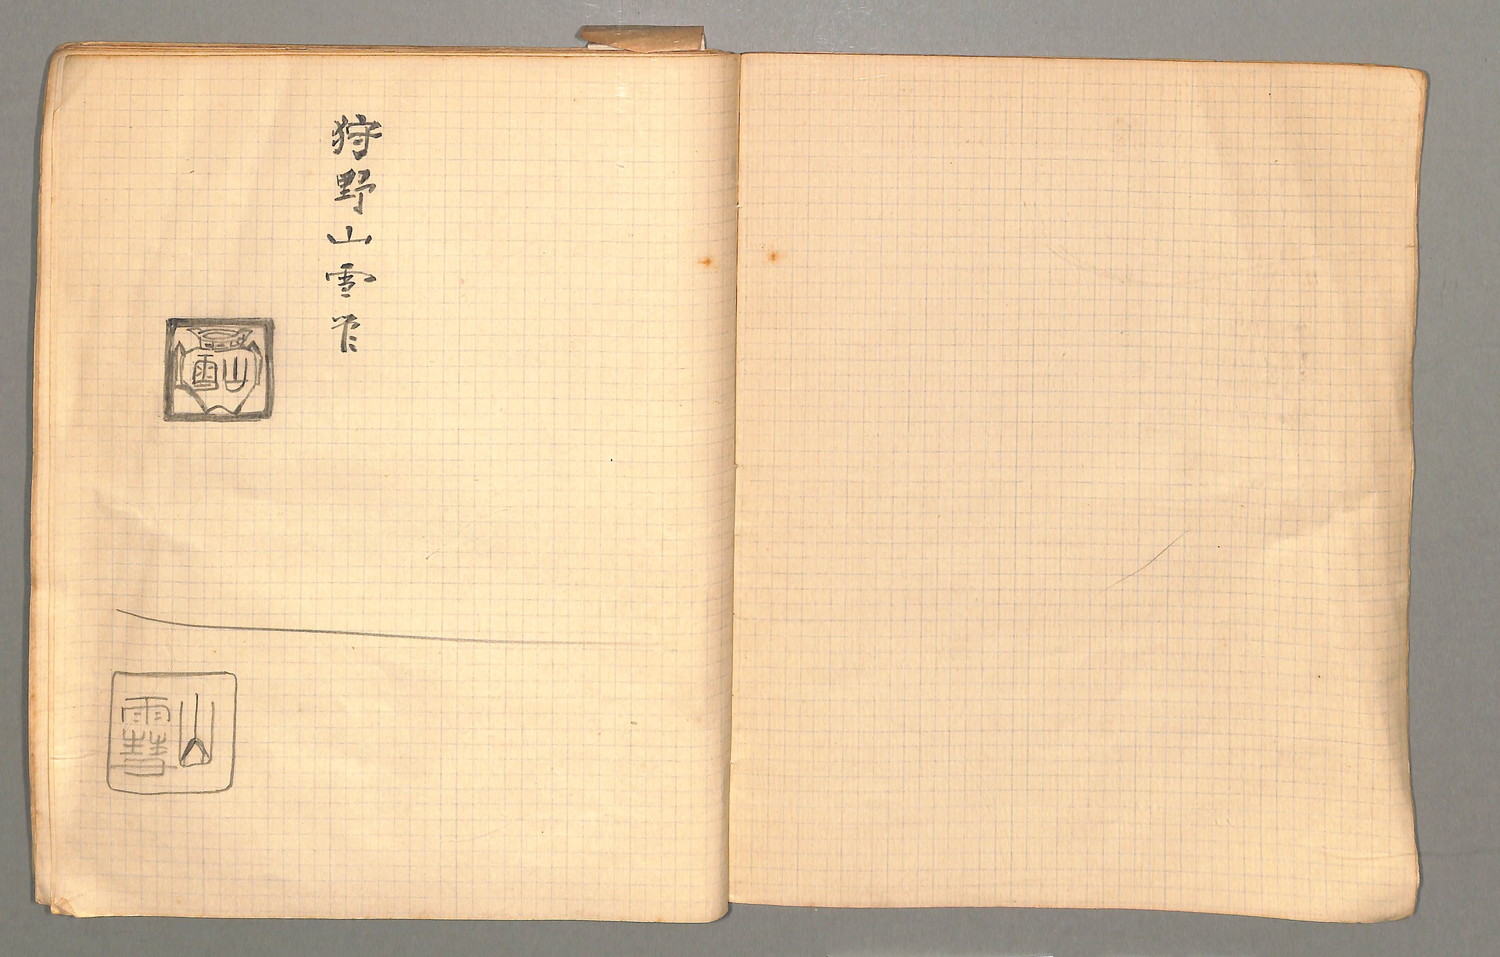 狩野山雪
山雪
山雪